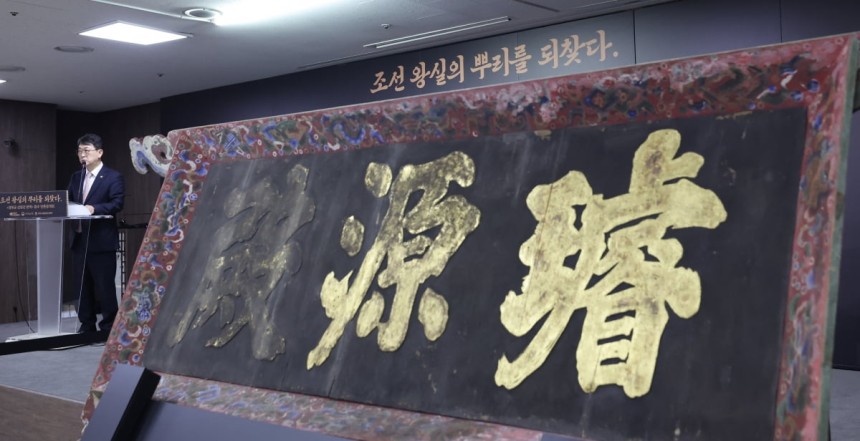 조선 왕실의 뿌리를 되찾다.
璿源殿
조선 왕실의 뿌리를 되찾다.